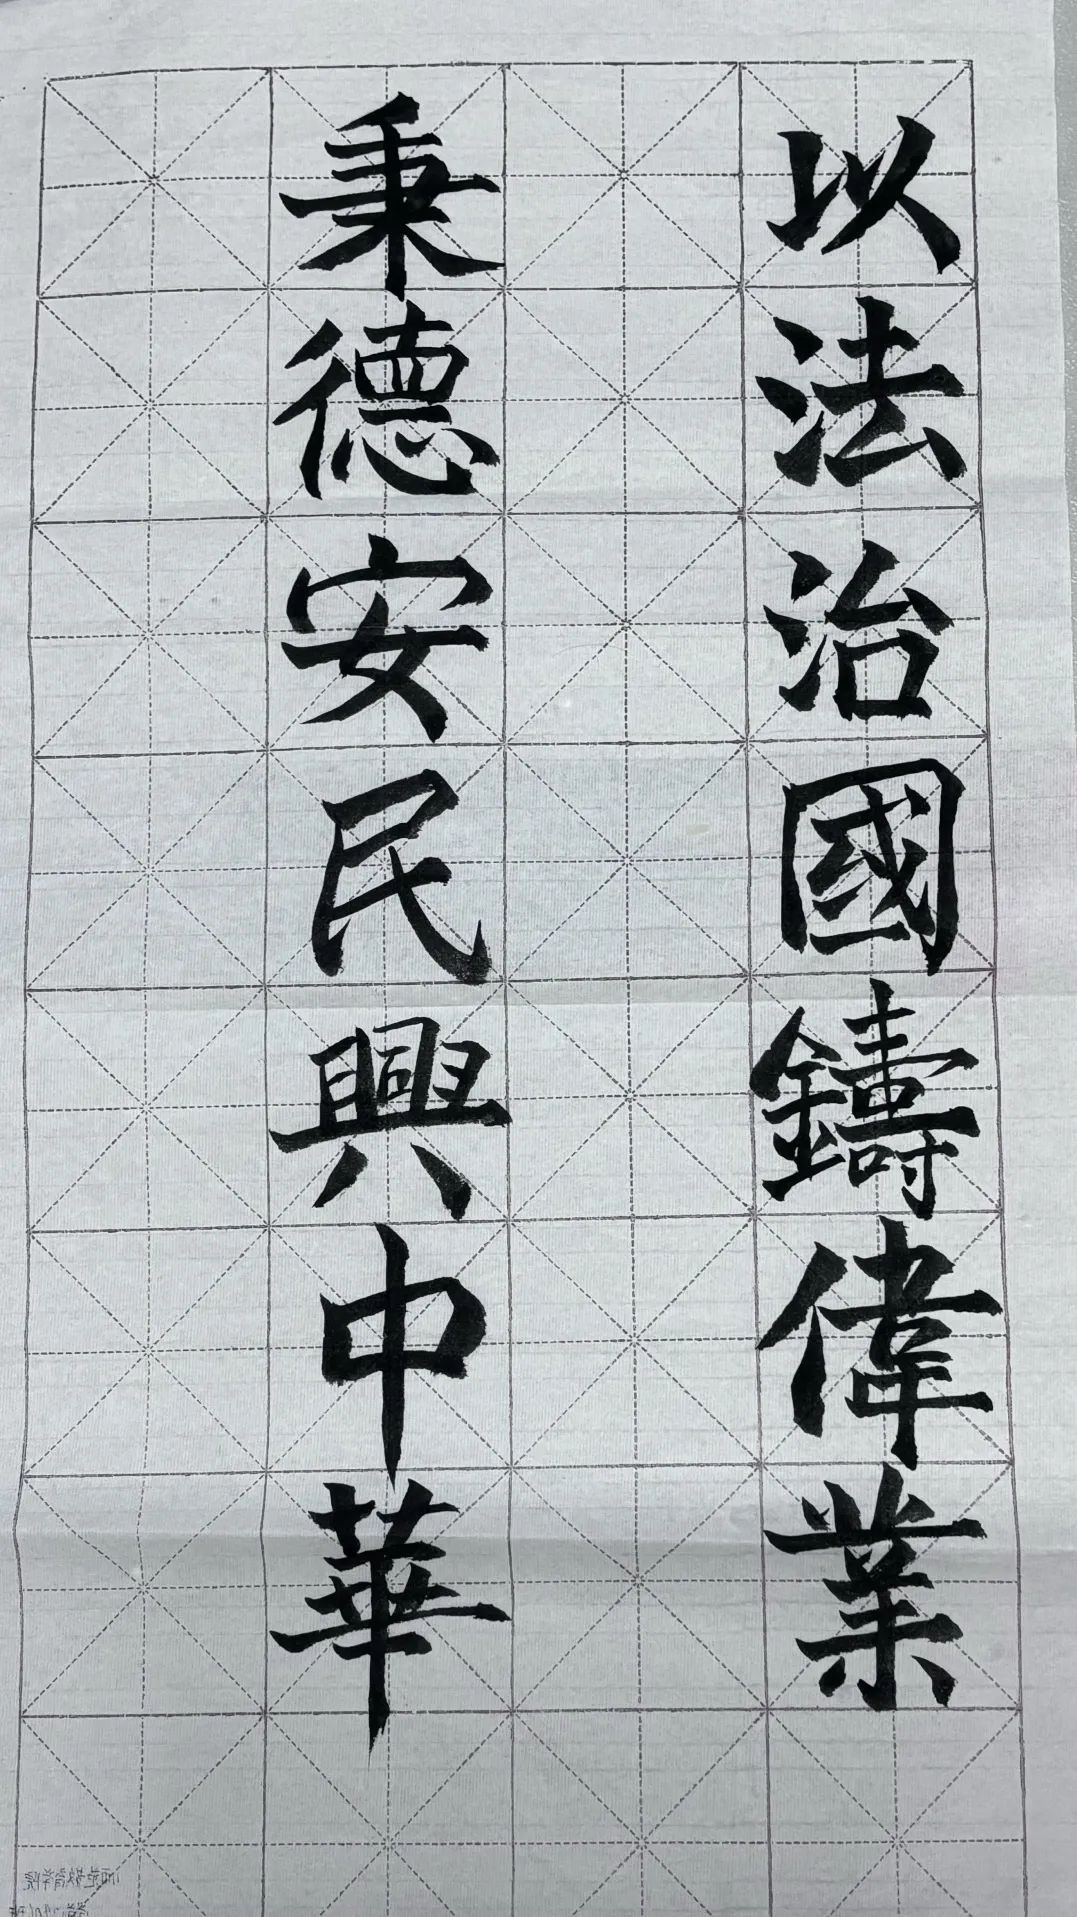 以法治國鑄偉業
秉德安民興中華